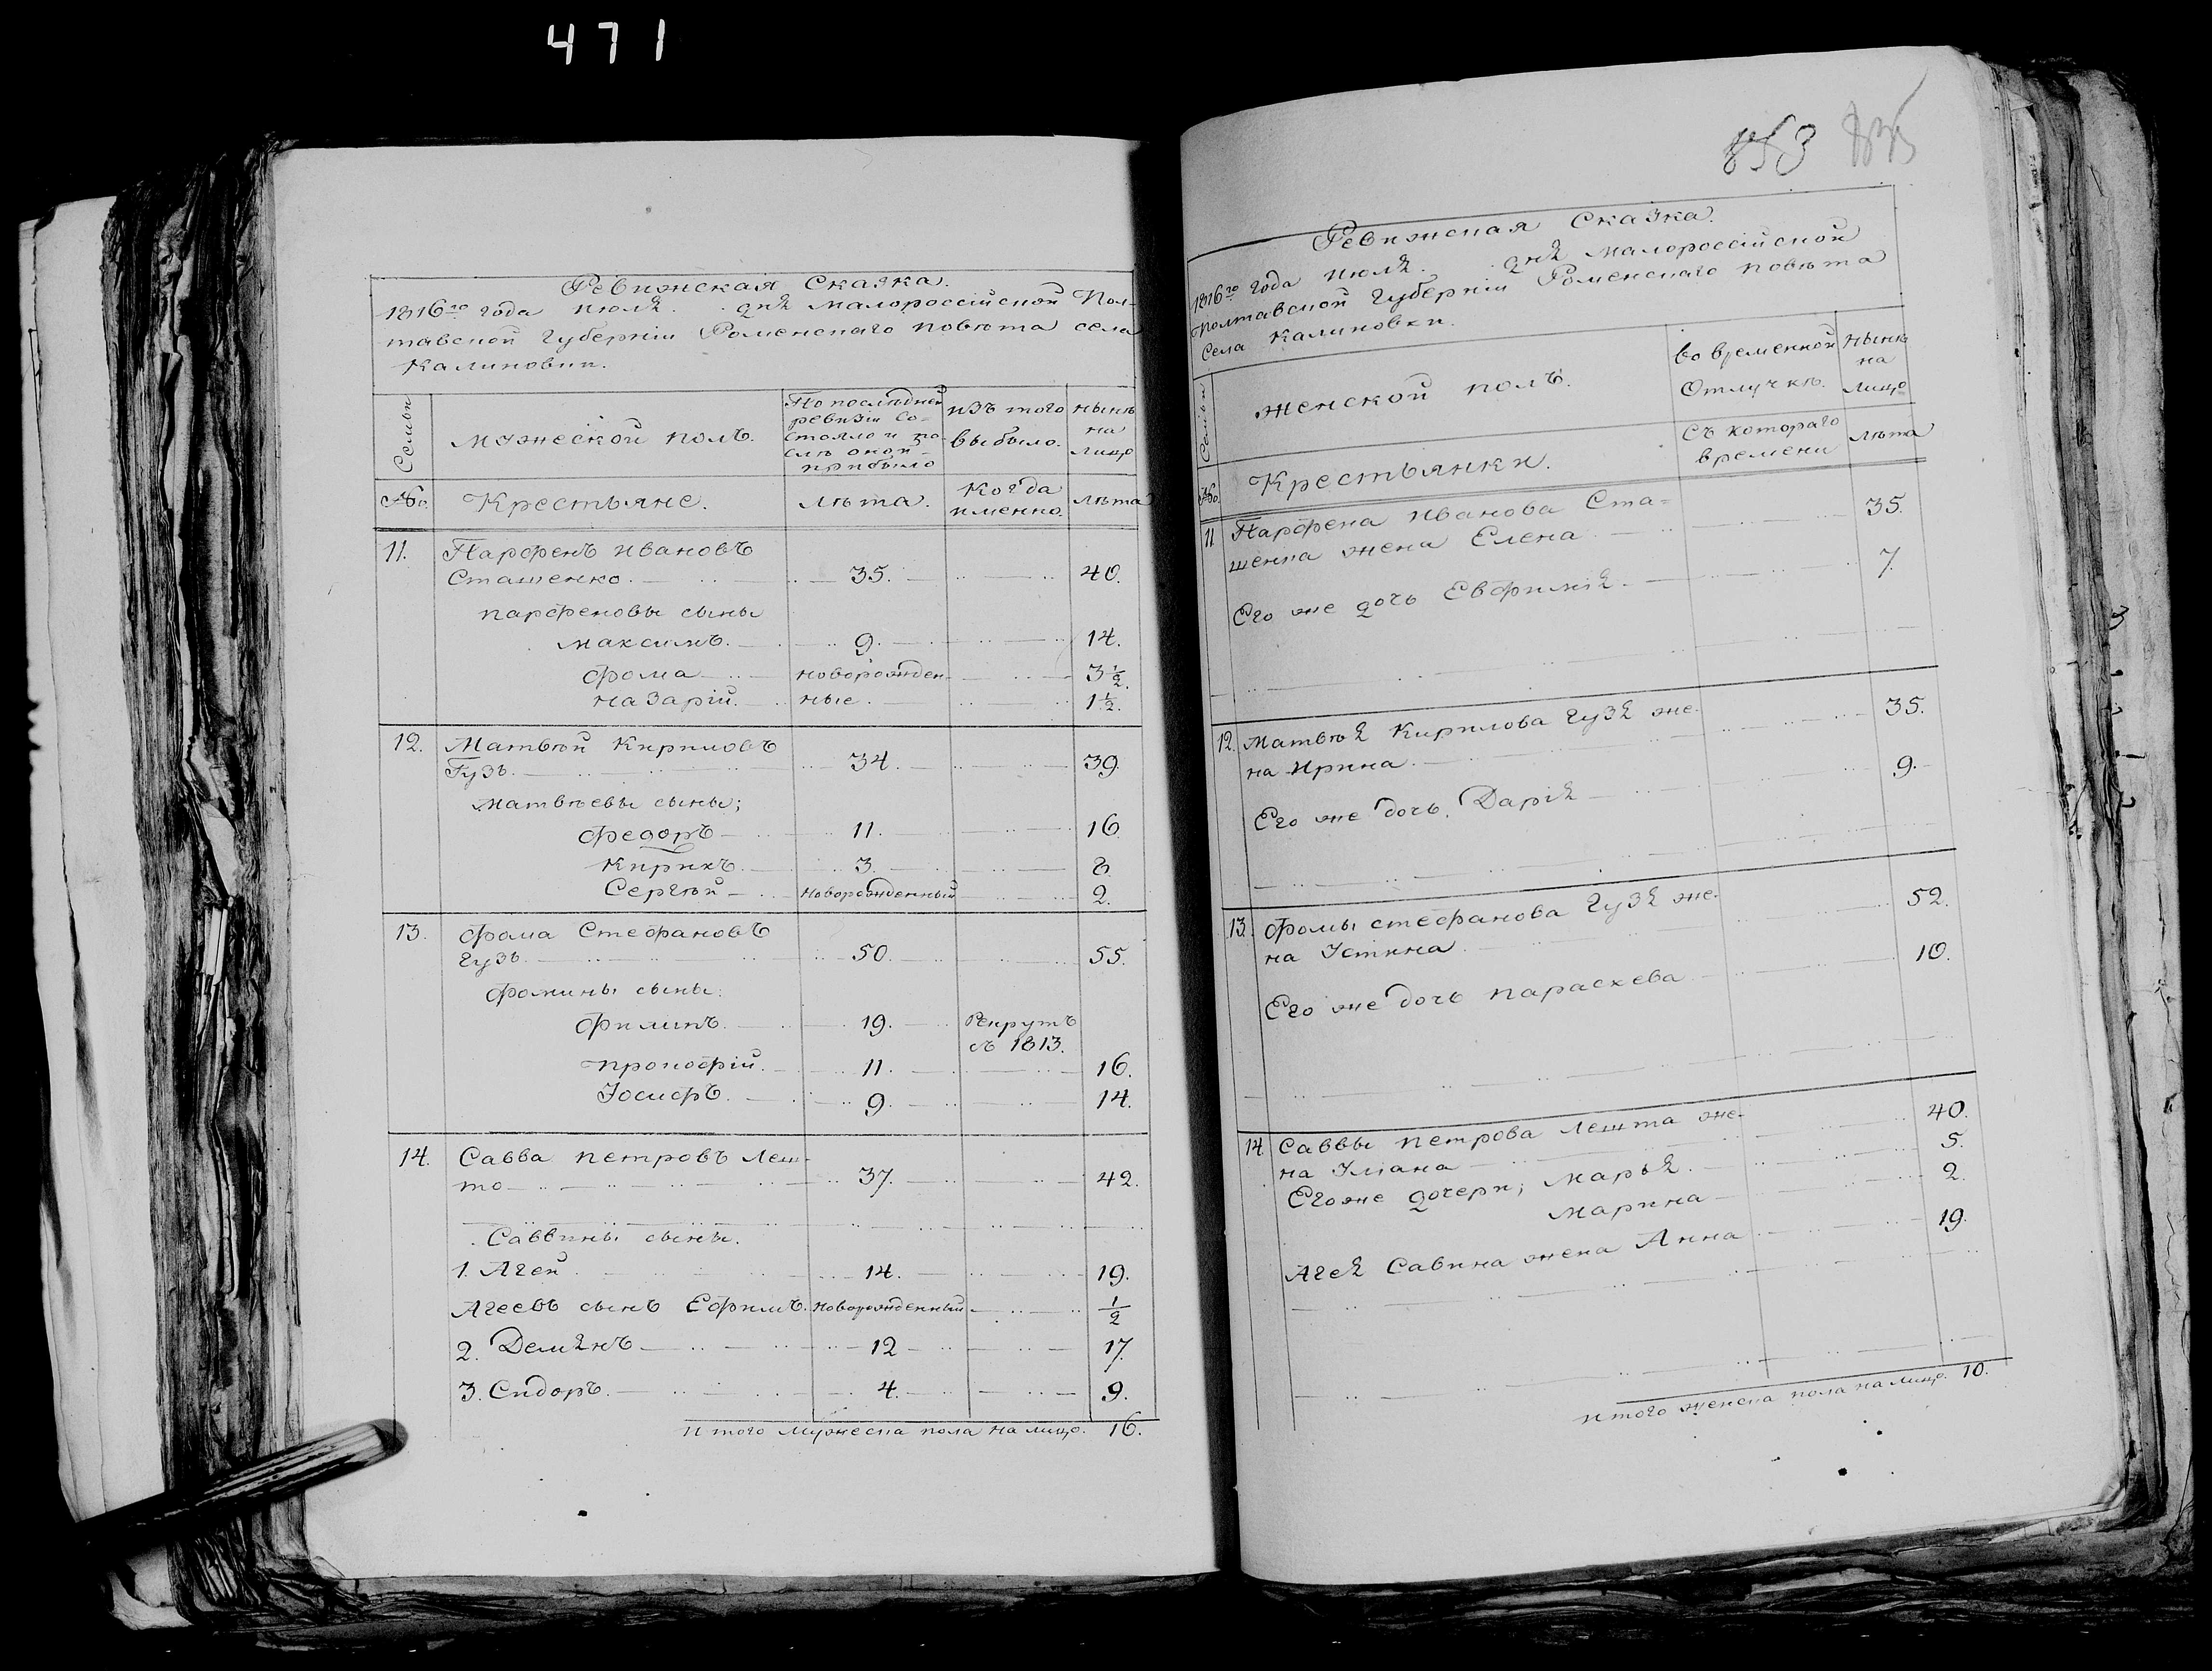 471
Ревижская Сказка.
1816го года июля . дня Малороссійской Пол-
тавской Губерніи Роменскаго повѣта села
Калиновки.
Семьи
мужеской полъ.
По послѣдней
ревизіи Со-
стояло и по-
слѣ оной
прибыло
изъ того
выбыло.
нынѣ
на
лицо
№о.
Крестьяне.
лѣта.
Когда
именно.
лѣта
11. Парфенъ Ивановъ
Сташенко. 35. 40.
Парфеновы сыны
Максимъ. 9. 14.
Фома новорожден- 3 1/2.
Назарій. ные. 1 1/2.
12. Матвѣй Кириловъ
Гузь. 34. 39.
Матвѣевы сыны;
Федоръ 11. 16.
Кирикъ. 3. 8.
Сергѣй новорожденный 2.
13. Фома Стефановъ
Гузь. 50. 55.
Фомины сыны:
Филипъ. 19. Рекрутъ
въ 1813.
Прокофій. 11. 16.
Іосифъ. 9. 14.
14. Савва Петровъ Леш-
то 37. 42.
Саввины сыны.
1. Агей 14. 19.
Агеевъ сынъ Ефимъ. новорожденный 1/2
2. Демянъ 12 17.
3. Сидоръ. 4. 9.
Итого мужеска пола на лицо. 16.
853
Ревижская Сказка.
1816го года июля . дня Малороссійской
Полтавской Губерніи Роменскаго повѣта
Села Калиновки.
Семьи
женской полъ.
во временной
Отлучкѣ.
нынѣ
на
лицо
№о.
Крестьянки.
Съ котораго
времени
лѣта
11 Парфена Иванова Ста-
шенка жена Елена 35.
Его же дочь Евфимія. 7.
12. Матвѣя Кирилова Гузя же-
на Ирина. 35.
Его же дочь Дарія 9.
13. Фомы Стефанова Гузя же-
на Устина 52.
Его же дочь Параскева 10.
14 Саввы Петрова Лешта же-
на Уліана 40.
Его же дочери; Марья. 5.
Марина 2.
Агея Савина жена Анна 19.
Итого женска пола на лицо. 10.